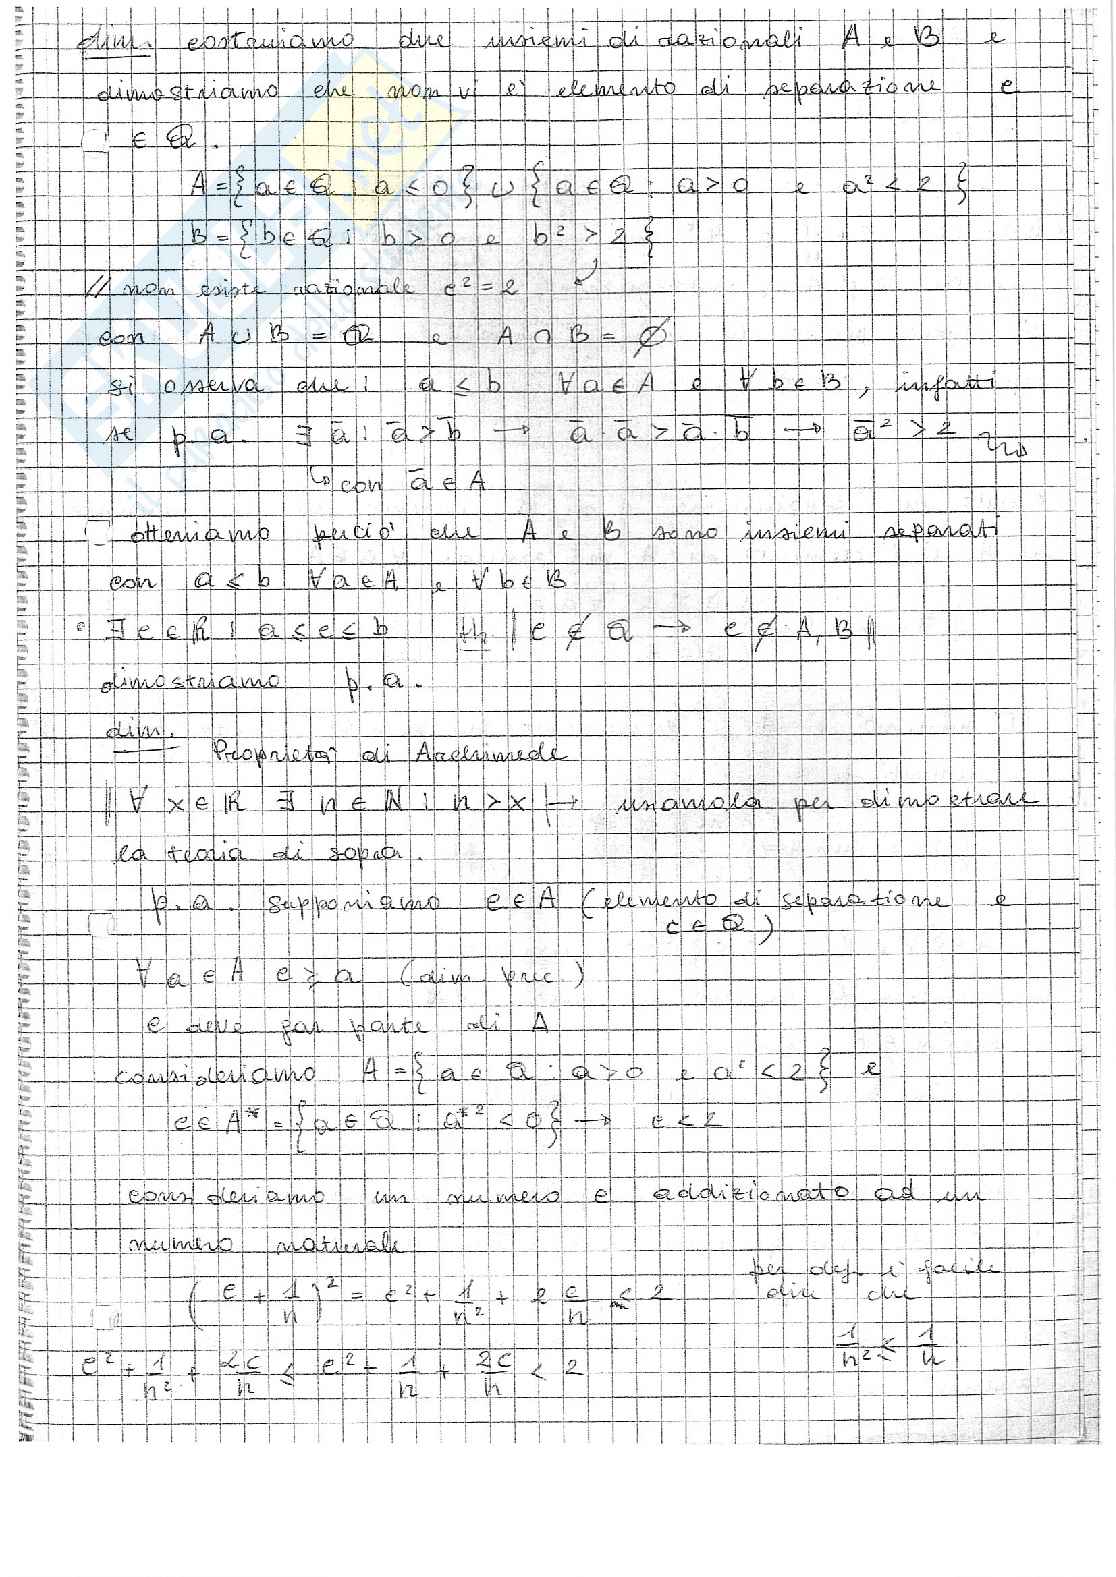 dim. costruiamo due insiemi di razionali A e B e
dimostriamo che non vi è elemento di separazione c
∈ Q.
A = { a ∈ Q : a ≤ 0 } ∪ { a ∈ Q : a > 0 e a² < 2 }
B = { b ∈ Q : b > 0 e b² > 2 }
// non esiste razionale c² = 2
con A ∪ B = Q e A ∩ B = ∅
si osserva che : a ≤ b ∀ a ∈ A e ∀ b ∈ B, infatti
se p.a. ∃ ā : ā > b̄ → ā · ā > ā · b̄ → ā² > 2
↳ con ā ∈ A
otteniamo perciò che A e B sono insiemi separati
con a < b ∀ a ∈ A e ∀ b ∈ B
• ∃ c ∈ R : a ≤ c ≤ b th || c ∉ Q → c ∉ A, B ||
dimostriamo p.a.
dim.
Proprietà di Archimede
|| ∀ x ∈ R ∃ n ∈ N : n > x | → usiamola per dimostrare
la teoria di sopra.
p.a. supponiamo c ∈ A (elemento di separazione e
c ∈ Q)
∀ a ∈ A c ≥ a (dim prec.)
c deve far parte di A
consideriamo A = { a ∈ Q : a > 0 e a² < 2 } e
c ∈ A* = { a ∈ Q : a*² < 0 } → c < 2
consideriamo un numero c addizionato ad un
numero naturale
(c + 1/n)² = c² + 1/n² + 2 c/n < 2 per def è facile
dire che
1/n² ≤ 1/n
c² + 1/n² + 2c/n ≤ c² + 1/n + 2c/n < 2